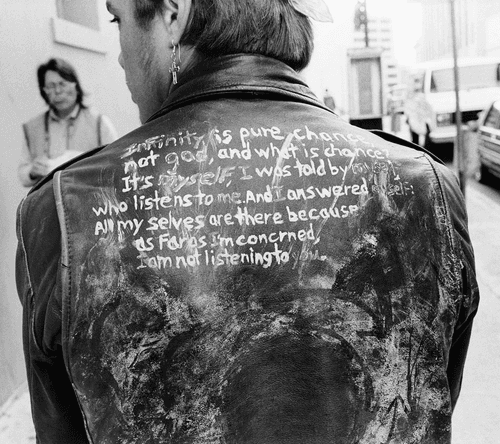 Infinity is pure chance
not god, and what is chance?
It's myself, I was told by myself,
who listens to me. And I answered myself:
All my selves are there because
as far as I'm concrned,
I am not listening to you.